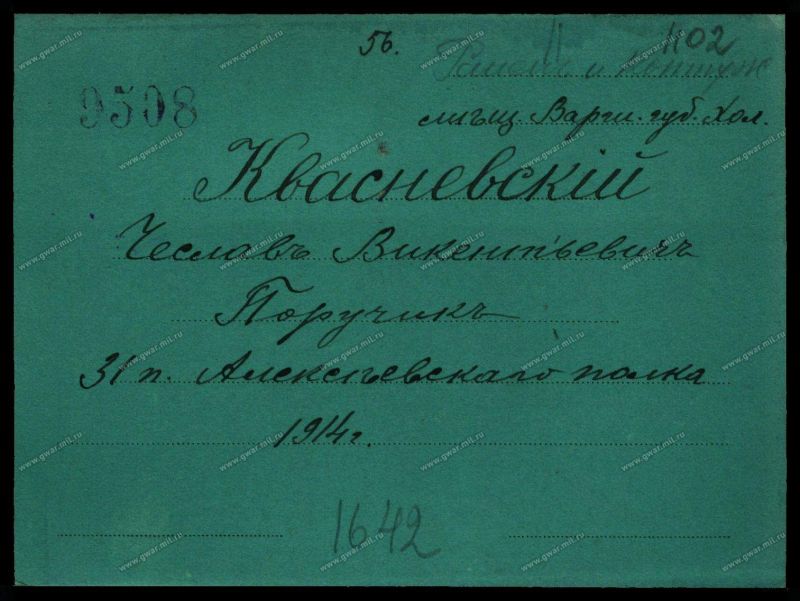 56.
1102
Раненъ и контуж
9508
мѣщ. Варш. губ. Хол.
Квасневскій
Чеславъ Викентьевичъ
Поручикъ
31 п. Алексѣевскаго полка
1914 г.
1642
www.gwar.mil.ru